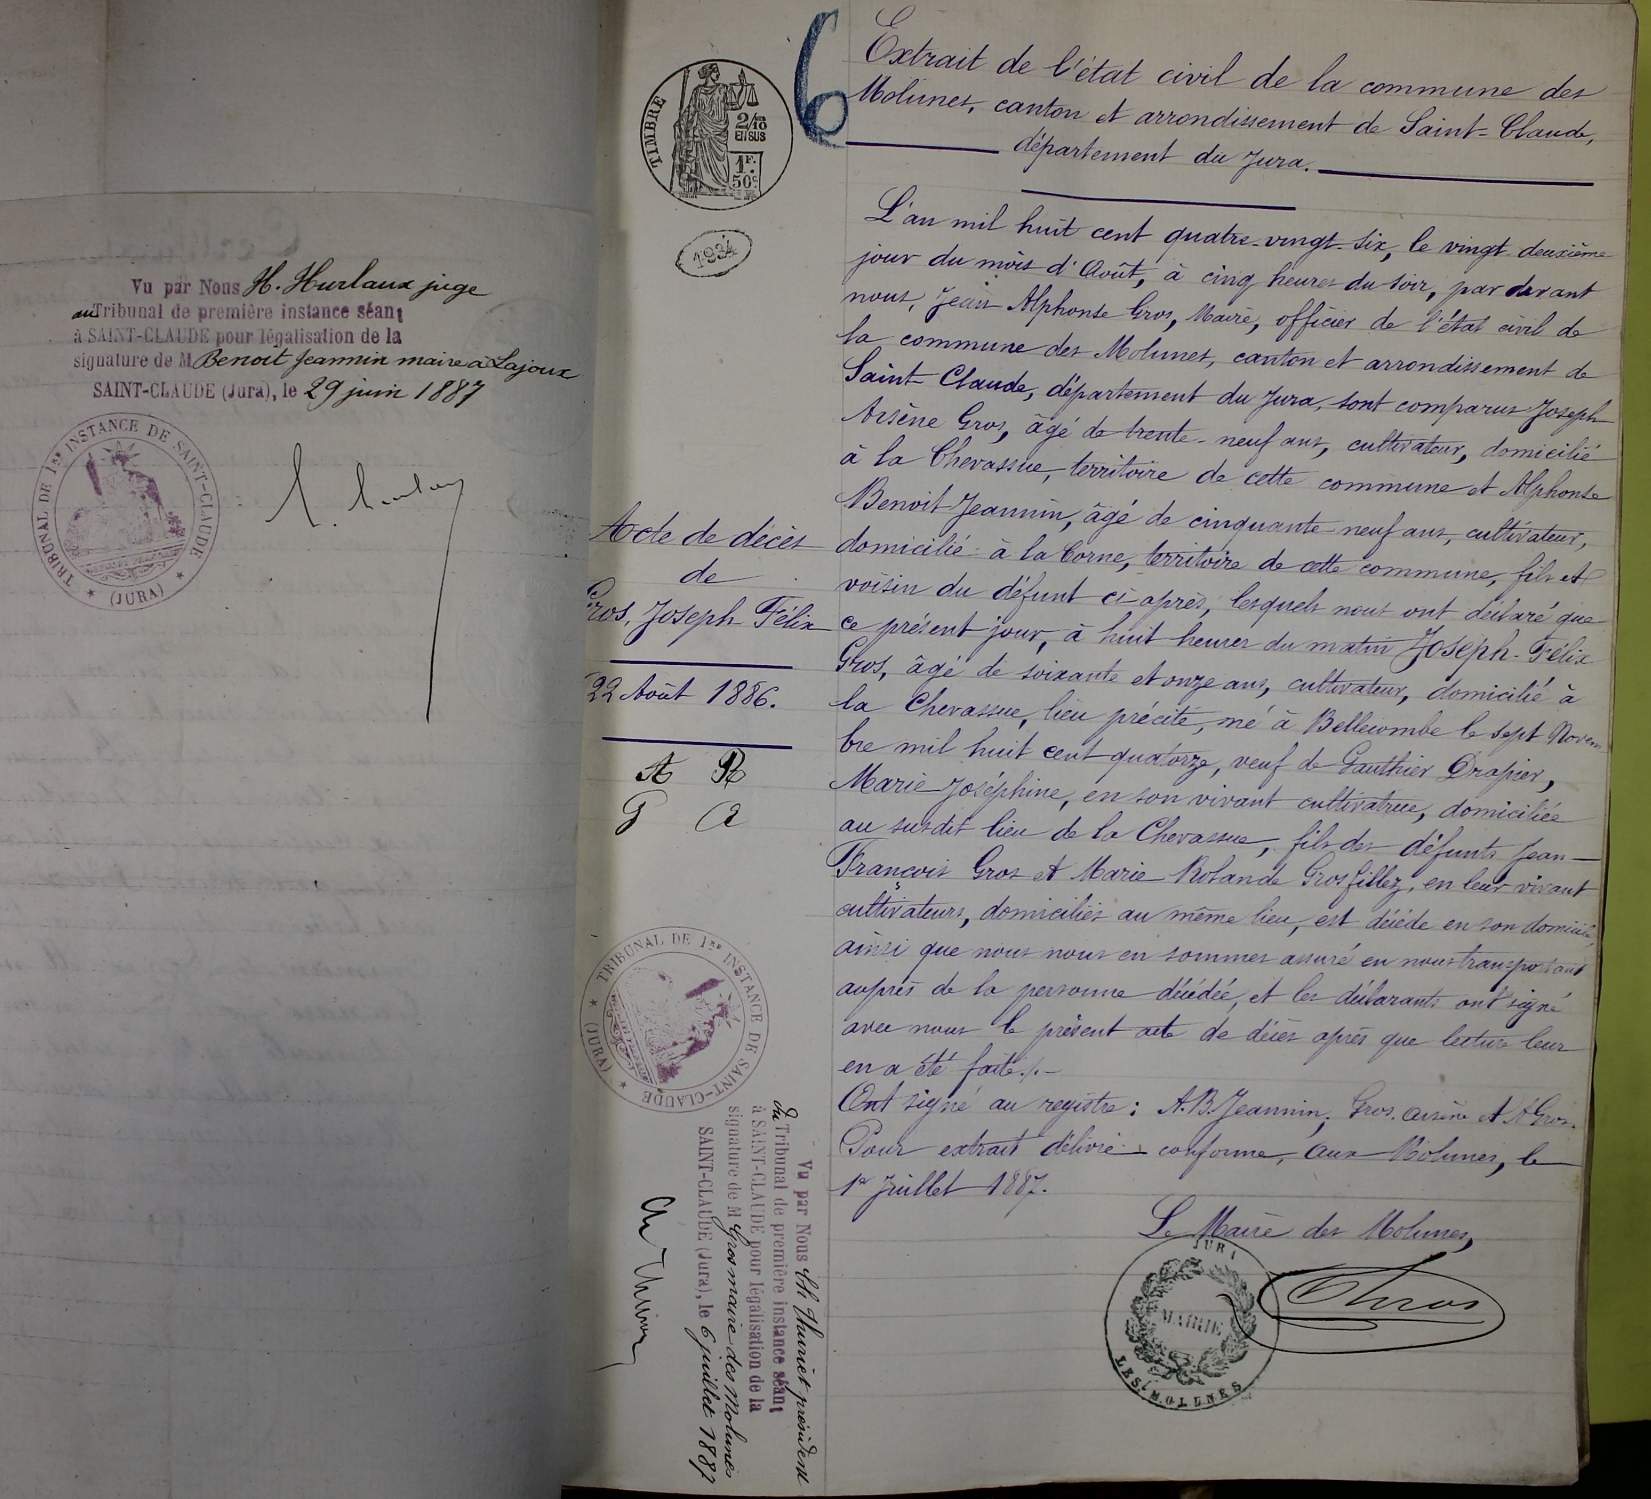 Vu par Nous H. Hurlaux juge
au Tribunal de première instance séant
à SAINT-CLAUDE pour légalisation de la
signature de M. Benoit Jeannin maire à Lajoux
SAINT-CLAUDE (Jura), le 29 juin 1887
TRIBUNAL DE 1re INSTANCE DE SAINT-CLAUDE
(JURA)
6
TIMBRE
2/10 EN SUS
1F.
50c
1934
Acte de décès
de
Gros, Joseph Félix
22 Août 1886.
A R
G A
TRIBUNAL DE 1re INSTANCE DE SAINT-CLAUDE
(JURA)
Vu par Nous Ch Thuriet président
du Tribunal de première instance séant
à SAINT-CLAUDE pour légalisation de la
signature de M Gros maire des Molunes
SAINT-CLAUDE (Jura), le 6 juillet 1887
Extrait de l'état civil de la commune des
Molunes, canton et arrondissement de Saint-Claude,
département du Jura.
L'an mil huit cent quatre-vingt-six, le vingt deuxième
jour du mois d'Août, à cinq heures du soir, par devant
nous, Jean Alphonse Gros, Maire, officier de l'état civil de
la commune des Molunes, canton et arrondissement de
Saint-Claude, département du Jura, sont comparus Joseph
Arsène Gros, âgé de trente-neuf ans, cultivateur, domicilié
à la Chevassue, territoire de cette commune et Alphonse
Benoit Jeannin, âgé de cinquante neuf ans, cultivateur,
domicilié à la Corne, territoire de cette commune, fils et
voisin du défunt ci-après, lesquels nous ont déclaré que
ce présent jour, à huit heures du matin Joseph-Félix
Gros, âgé de soixante et onze ans, cultivateur, domicilié à
la Chevassue, lieu précité, né à Bellecombe le sept Novem
bre mil huit cent quatorze, veuf de Gauthier Drapier,
Marie Joséphine, en son vivant cultivatrice, domiciliée
au susdit lieu de la Chevassue, fils des défunts Jean-
François Gros et Marie Rolande Grosfillez, en leur vivant
cultivateurs, domiciliés au même lieu, est décédé en son domicile,
ainsi que nous nous en sommes assuré en nous transportant
auprès de la personne décédée, et les déclarants ont signé
avec nous le présent acte de décès après que lecture leur
en a été faite./.
Ont signé au registre: A.B. Jeannin, Gros. Arsène et A Gros.
Pour extrait délivré conforme, aux Molunes, le
1er Juillet 1887.
Le Maire des Molunes,
JURA
MAIRIE
LES MOLUNES